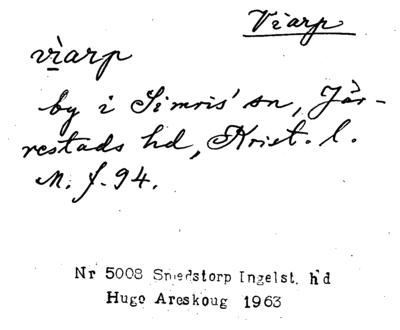 Viarp
vìarp
by i Simris' sn, Jär-
restads hd, Krist. l.
M. f. 94.
Nr 5008 Smedstorp Ingelst. hd
Hugo Areskoug 1963